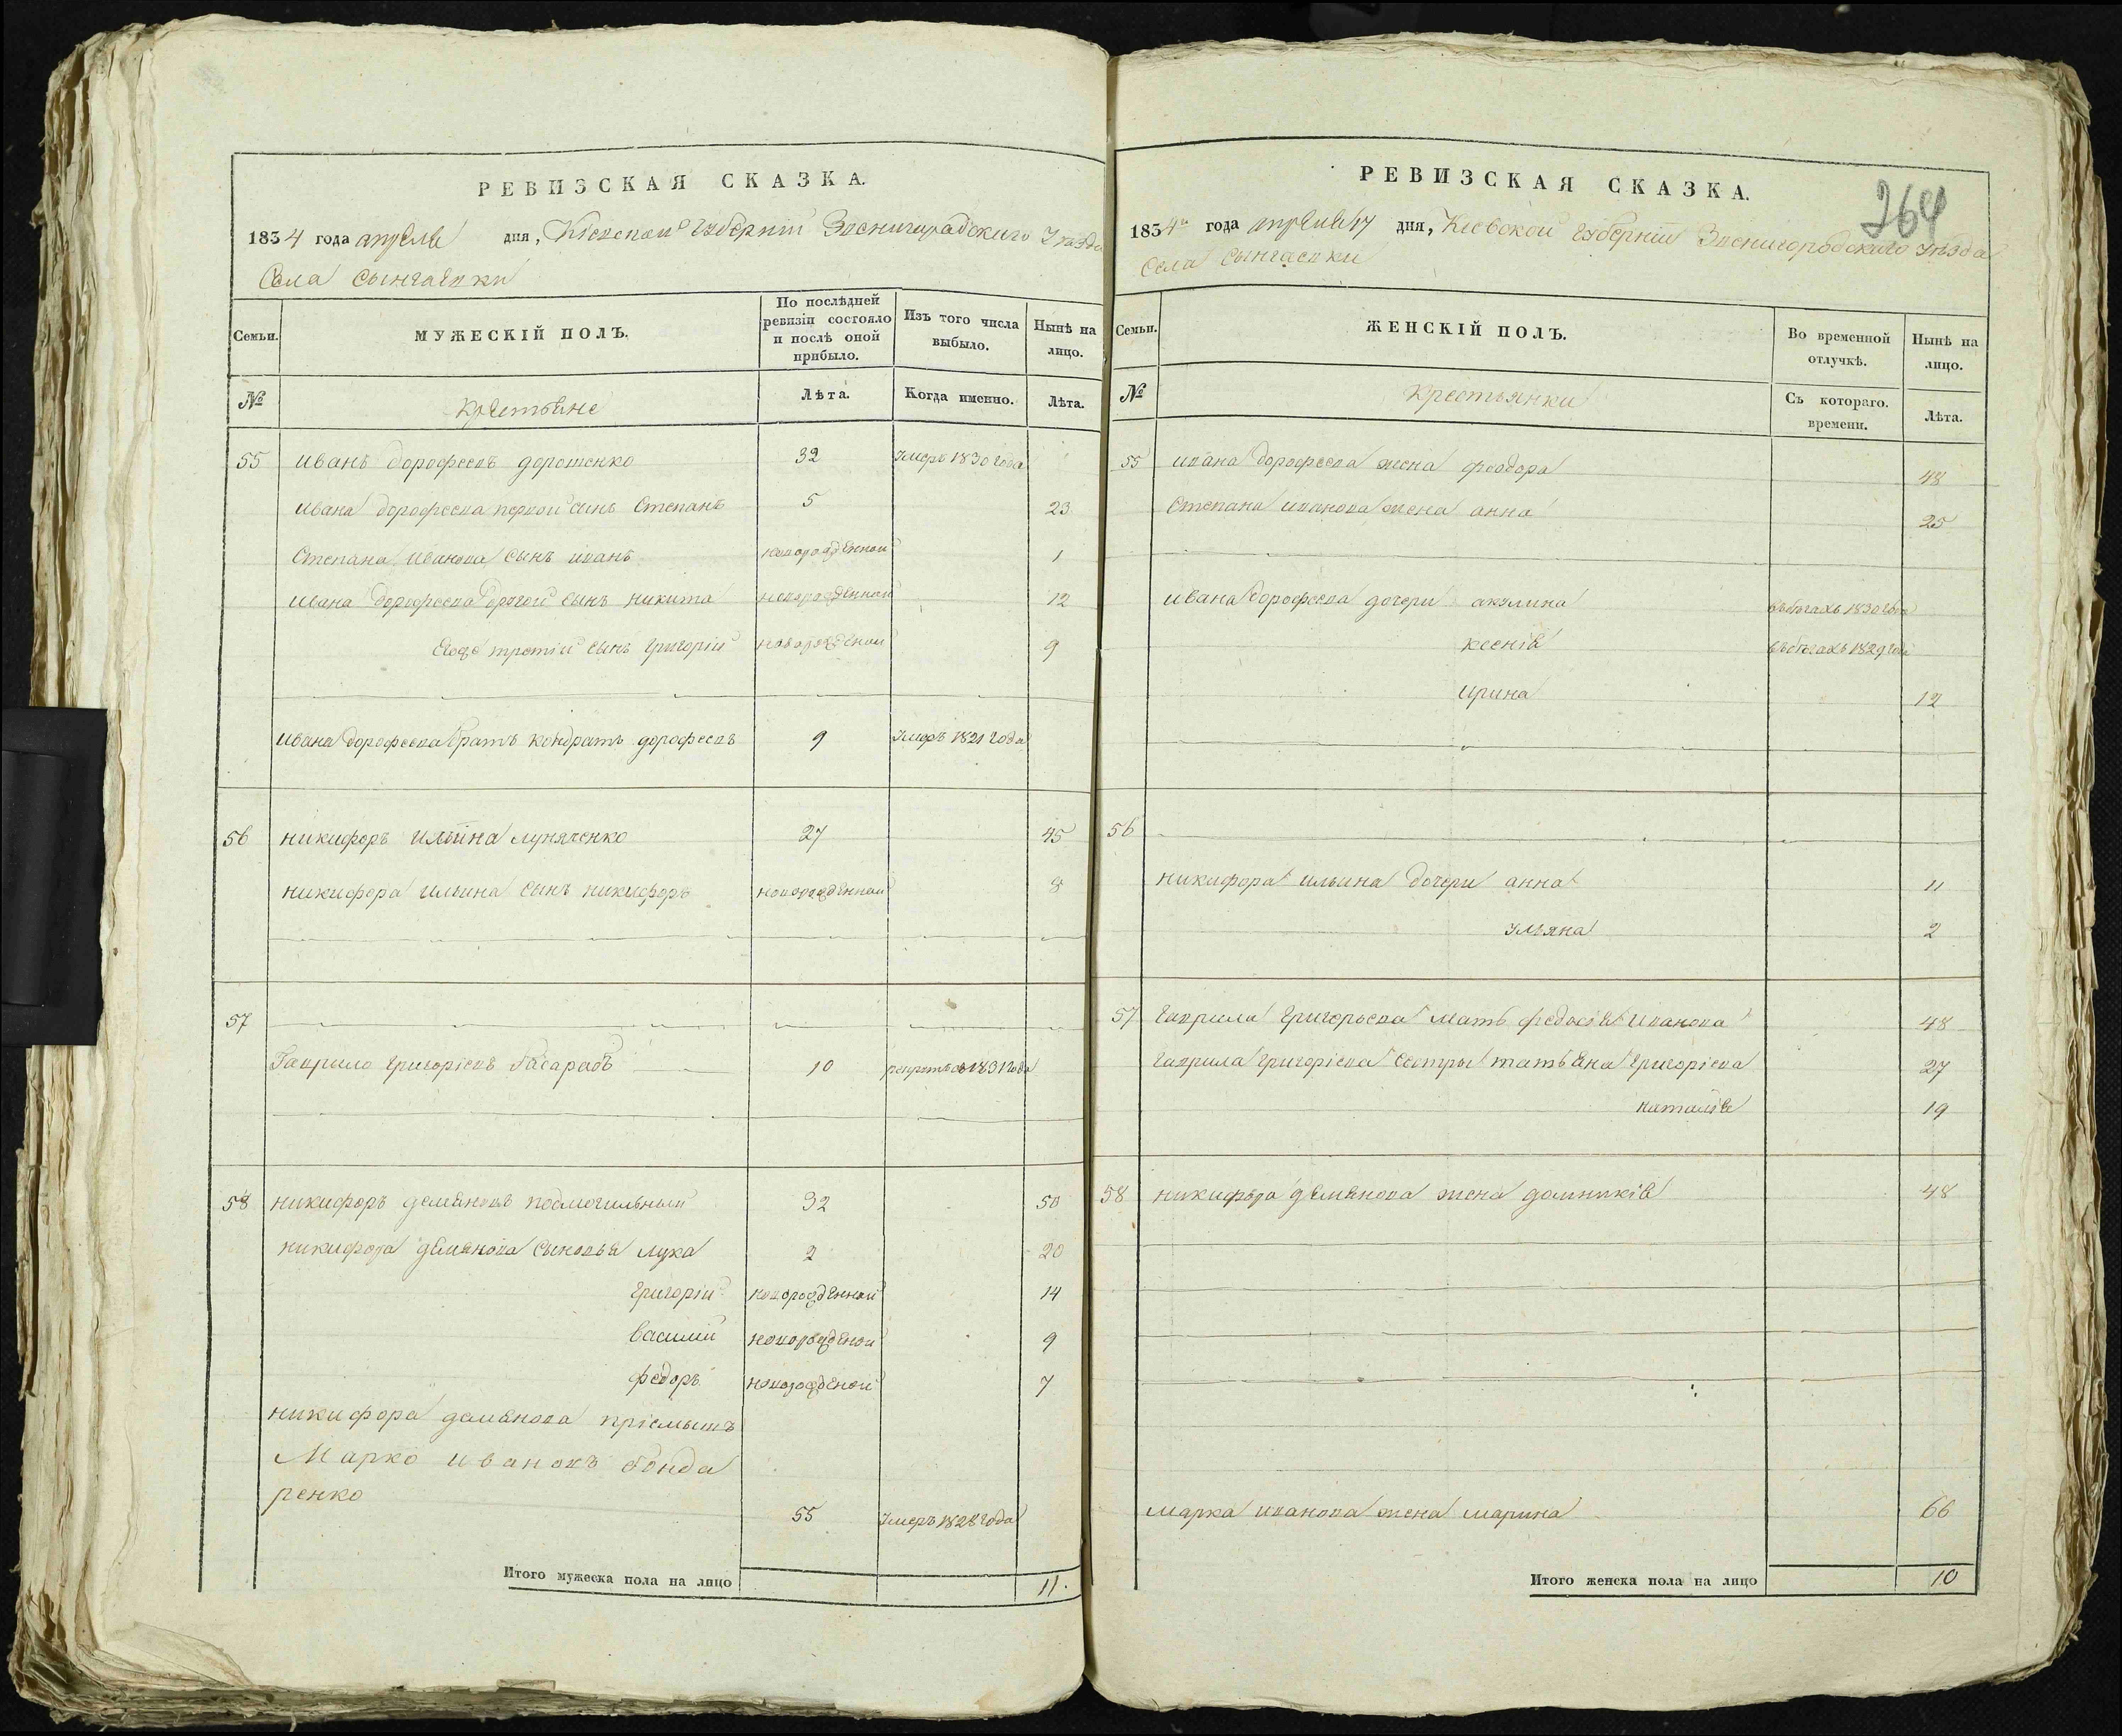 РЕВИЗСКАЯ СКАЗКА.
1834 года апреля дня, Кіевской губерніи Звенигородского уезда
Села Сынгаевки
Семьи.
МУЖЕСКІЙ ПОЛЪ.
По послѣдней ревизіи состояло и послѣ оной прибыло.
Изъ того числа выбыло.
Нынѣ на лицо.
№
крестьяне
Лѣта.
Когда именно.
Лѣта.
55 иванъ дорофеевъ дорошенко 32 умеръ 1830 года
ивана дорофеева первой сынъ Степанъ 5 23
Степана иванова сынъ иванъ новорожденной 1
ивана дорофеева другой сынъ никита новорожденной 12
Егоже третіи сынъ григоріи новорожденой 9
ивана дорофеева братъ кондратъ дорофеевъ 9 умеръ 1821 года
56 никифоръ ильина луняченко 27 45
никифора ильина сынъ никифоръ новорожденной 8
57
Гаврило григоріевъ басарабъ 10 1831 года
58 никифоръ демяновъ подмогильный 32 50
никифора демянова сыновья лука 2 20
григоріи новорожденной 14
василій новорожденой 9
федоръ новорожденой 7
никифора демянова пріемышъ
Марко ивановъ бонда
ренко
55 умеръ 1828 года
Итого мужеска пола на лицо 11.
РЕВИЗСКАЯ СКАЗКА.
264
1834 года апреля 17 дня, Кіевской губерніи Звенигородскаго уезда
Села Сынгаевки
Семьи.
ЖЕНСКІЙ ПОЛЪ.
Во временной отлучкѣ.
Нынѣ на лицо.
№
Крестьянки
Съ котораго. времени.
Лѣта.
55 ивана дорофеева жена феодора 48
Степана иванова жена анна 25
ивана дорофеева дочери акулина въ бегахъ 1830 года
ксенія въ бегахъ 1829 года
ирина 12
56
никифора ильина дочери анна 11
ульяна 2
57 гаврила григорьева мать федосія иванова 48
гаврила григоріева сестры татьяна григоріева 27
наталія 19
58 никифора демянова жена домникія 48
марка иванова жена марина 66
Итого женска пола на лицо 10